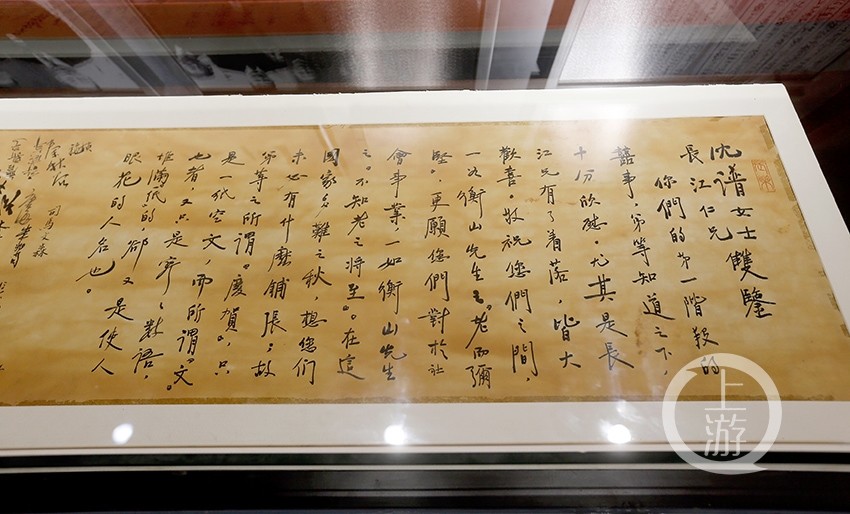 沈譜女士雙鑒
長江仁兄
你們的第一階段的
囍事，弟等知道之下，
十分欣慰。尤其是長
江兄有了着落，皆大
歡喜。敬祝您們之間，
一如衡山先生之"老而彌
堅"。更願您們對於社
會事業，一如衡山先生
之"不知老之將至"。在這
國家多難之秋，想您們
未必有什麼鋪張；故
弟等之所謂"慶賀"，只
是一代空文，而所謂"文"
也者，又只是寥寥數語，
堆滿紙的，卻又是使人
眼花的人名也。
司馬文森
上游